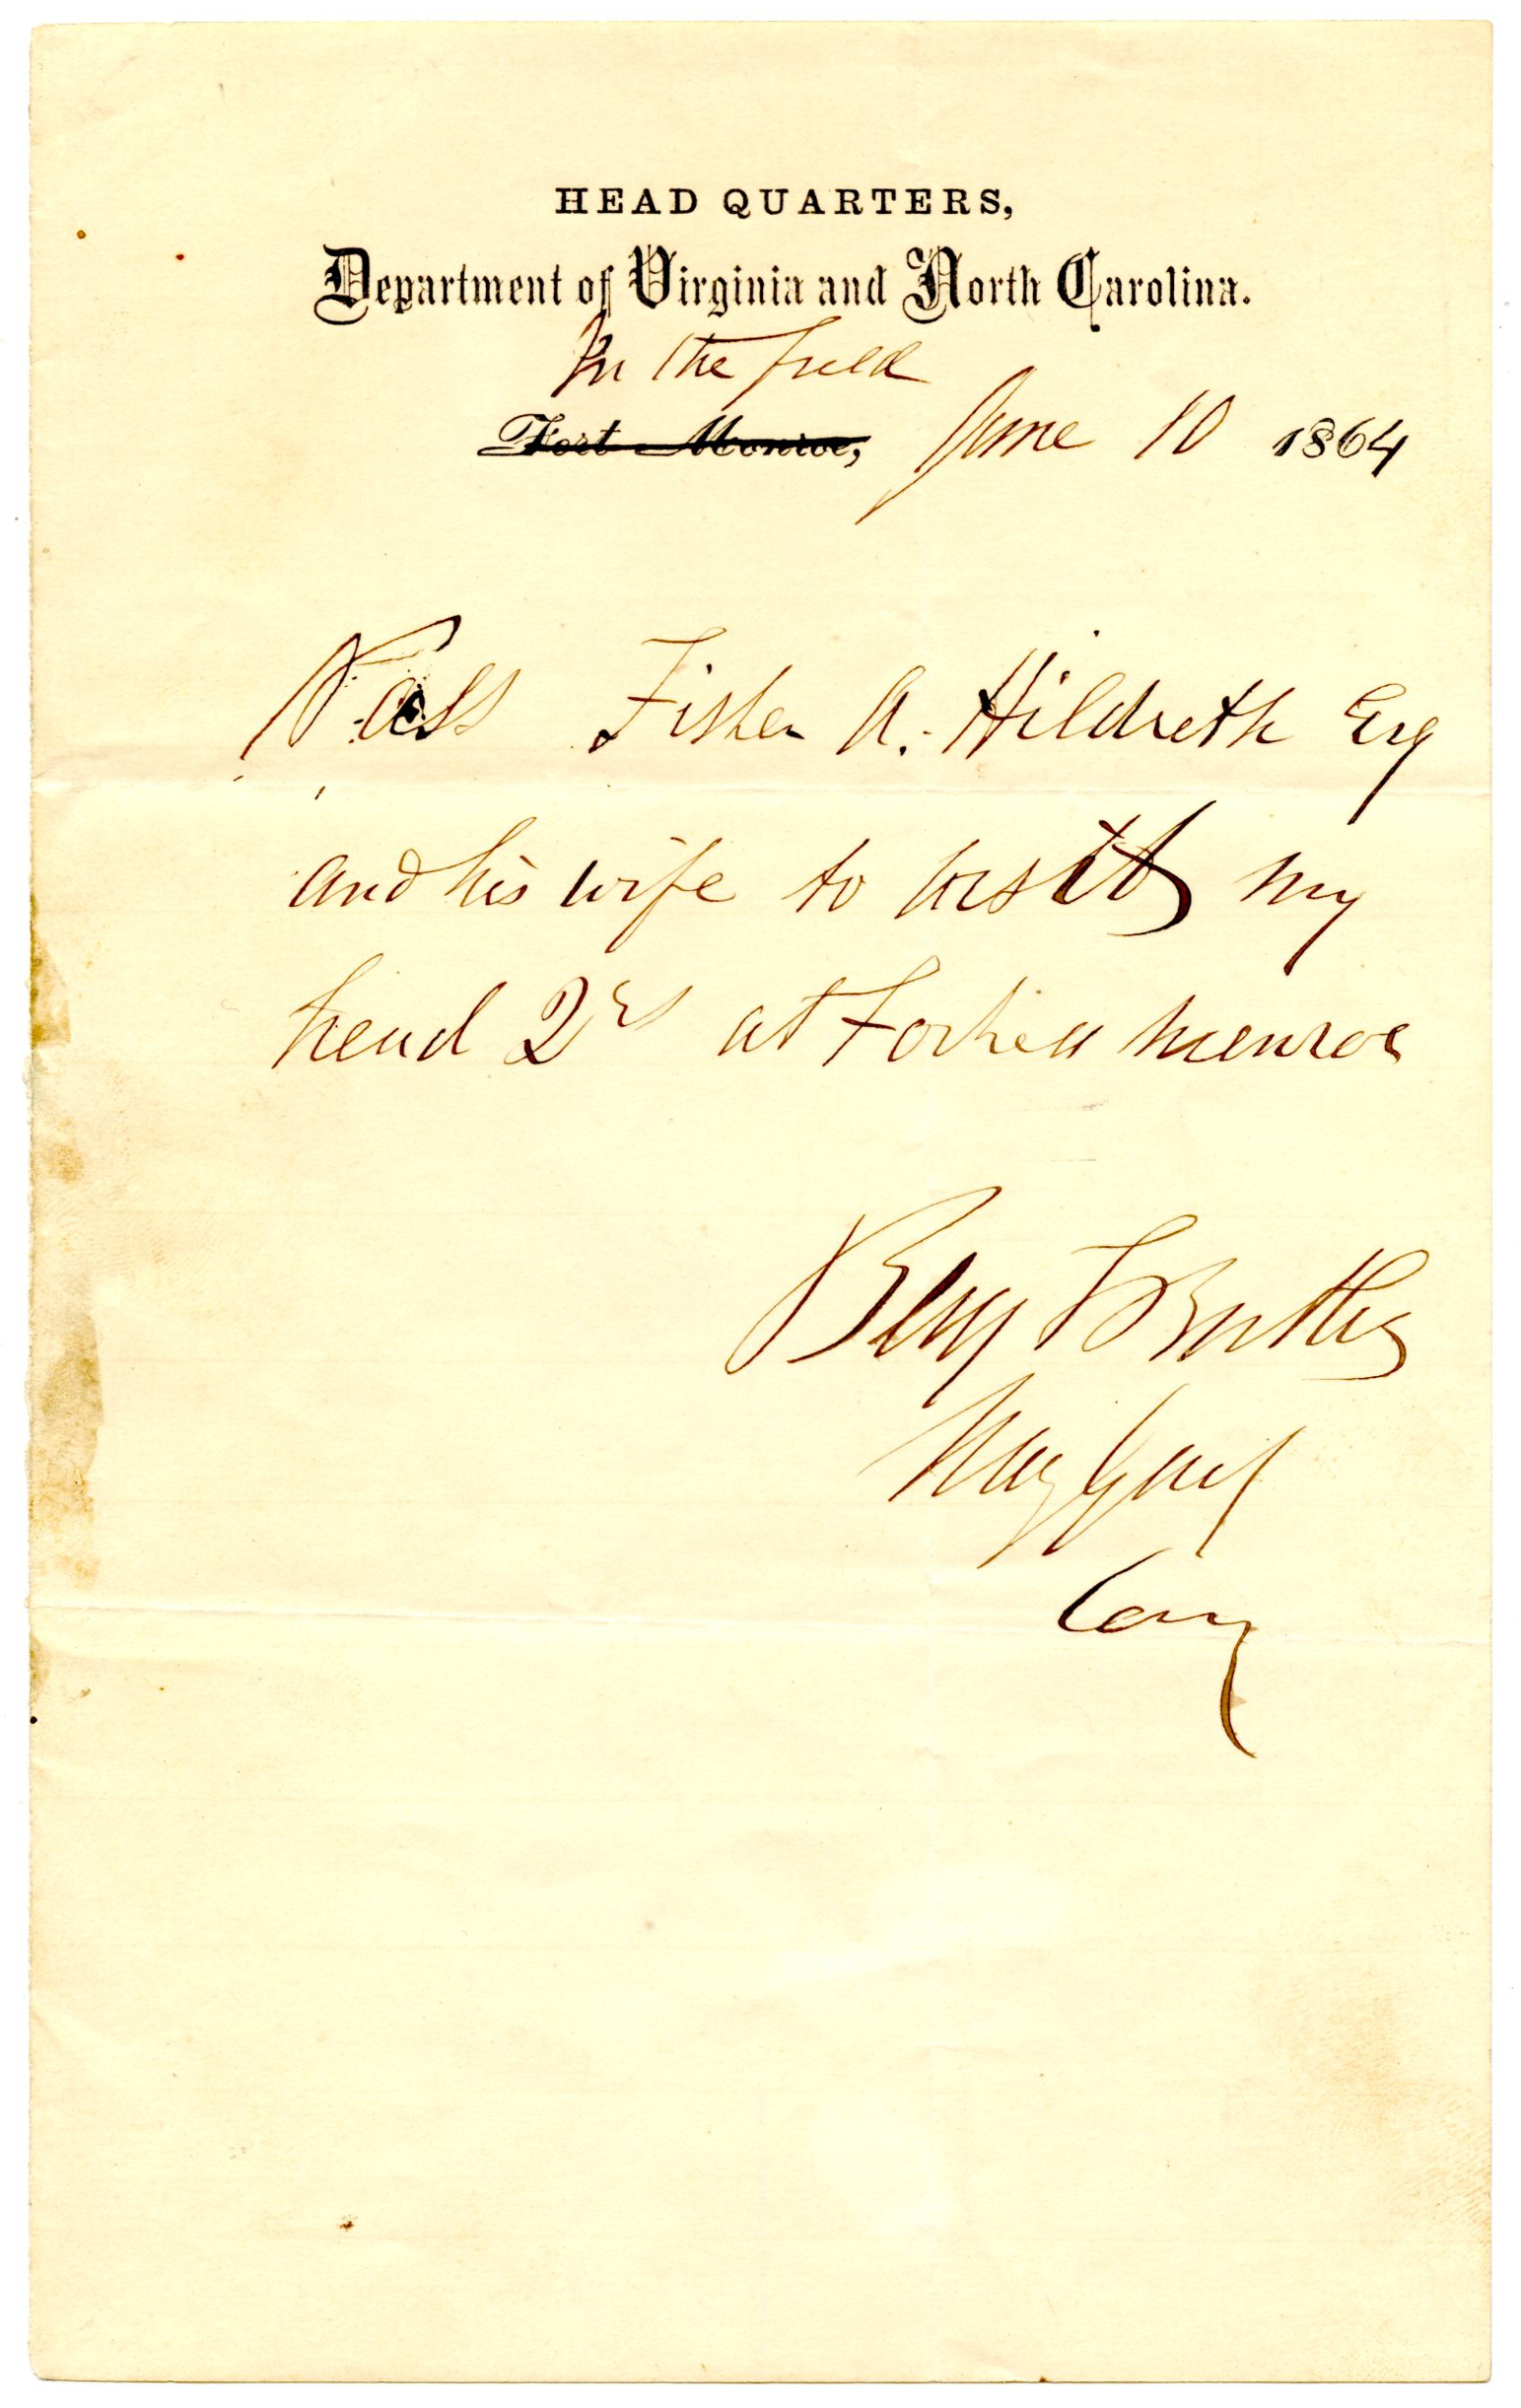 HEAD QUARTERS,
Department of Virginia and North Carolina.
In the field
Fort Monroe, June 10 1864
Pass Fisher A. Hildreth Esq
and his wife to visit my
head Qrs at Fortress Monroe
Benj F Butler
Maj Genl
Com